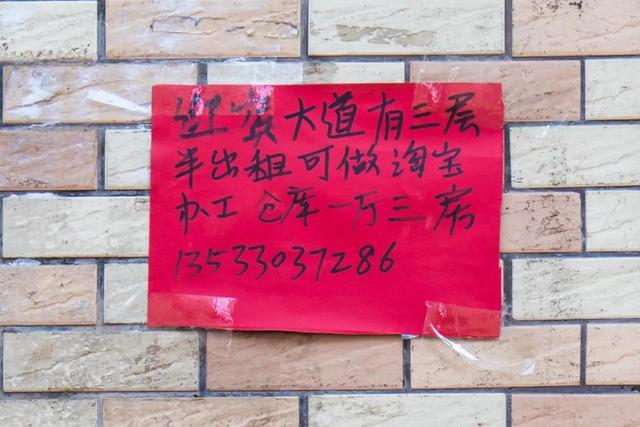 迎宾大道有三层
半出租可做淘宝
办工仓库一万三房
13533037286